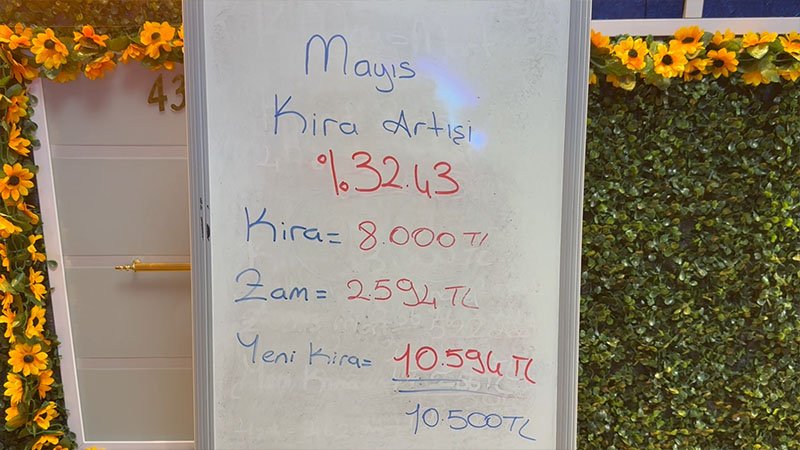 43
Mayıs
Kira Artışı
%32.43
Kira= 8.000 TL
Zam= 2.594 TL
Yeni Kira= 10.594 TL
10.500TL